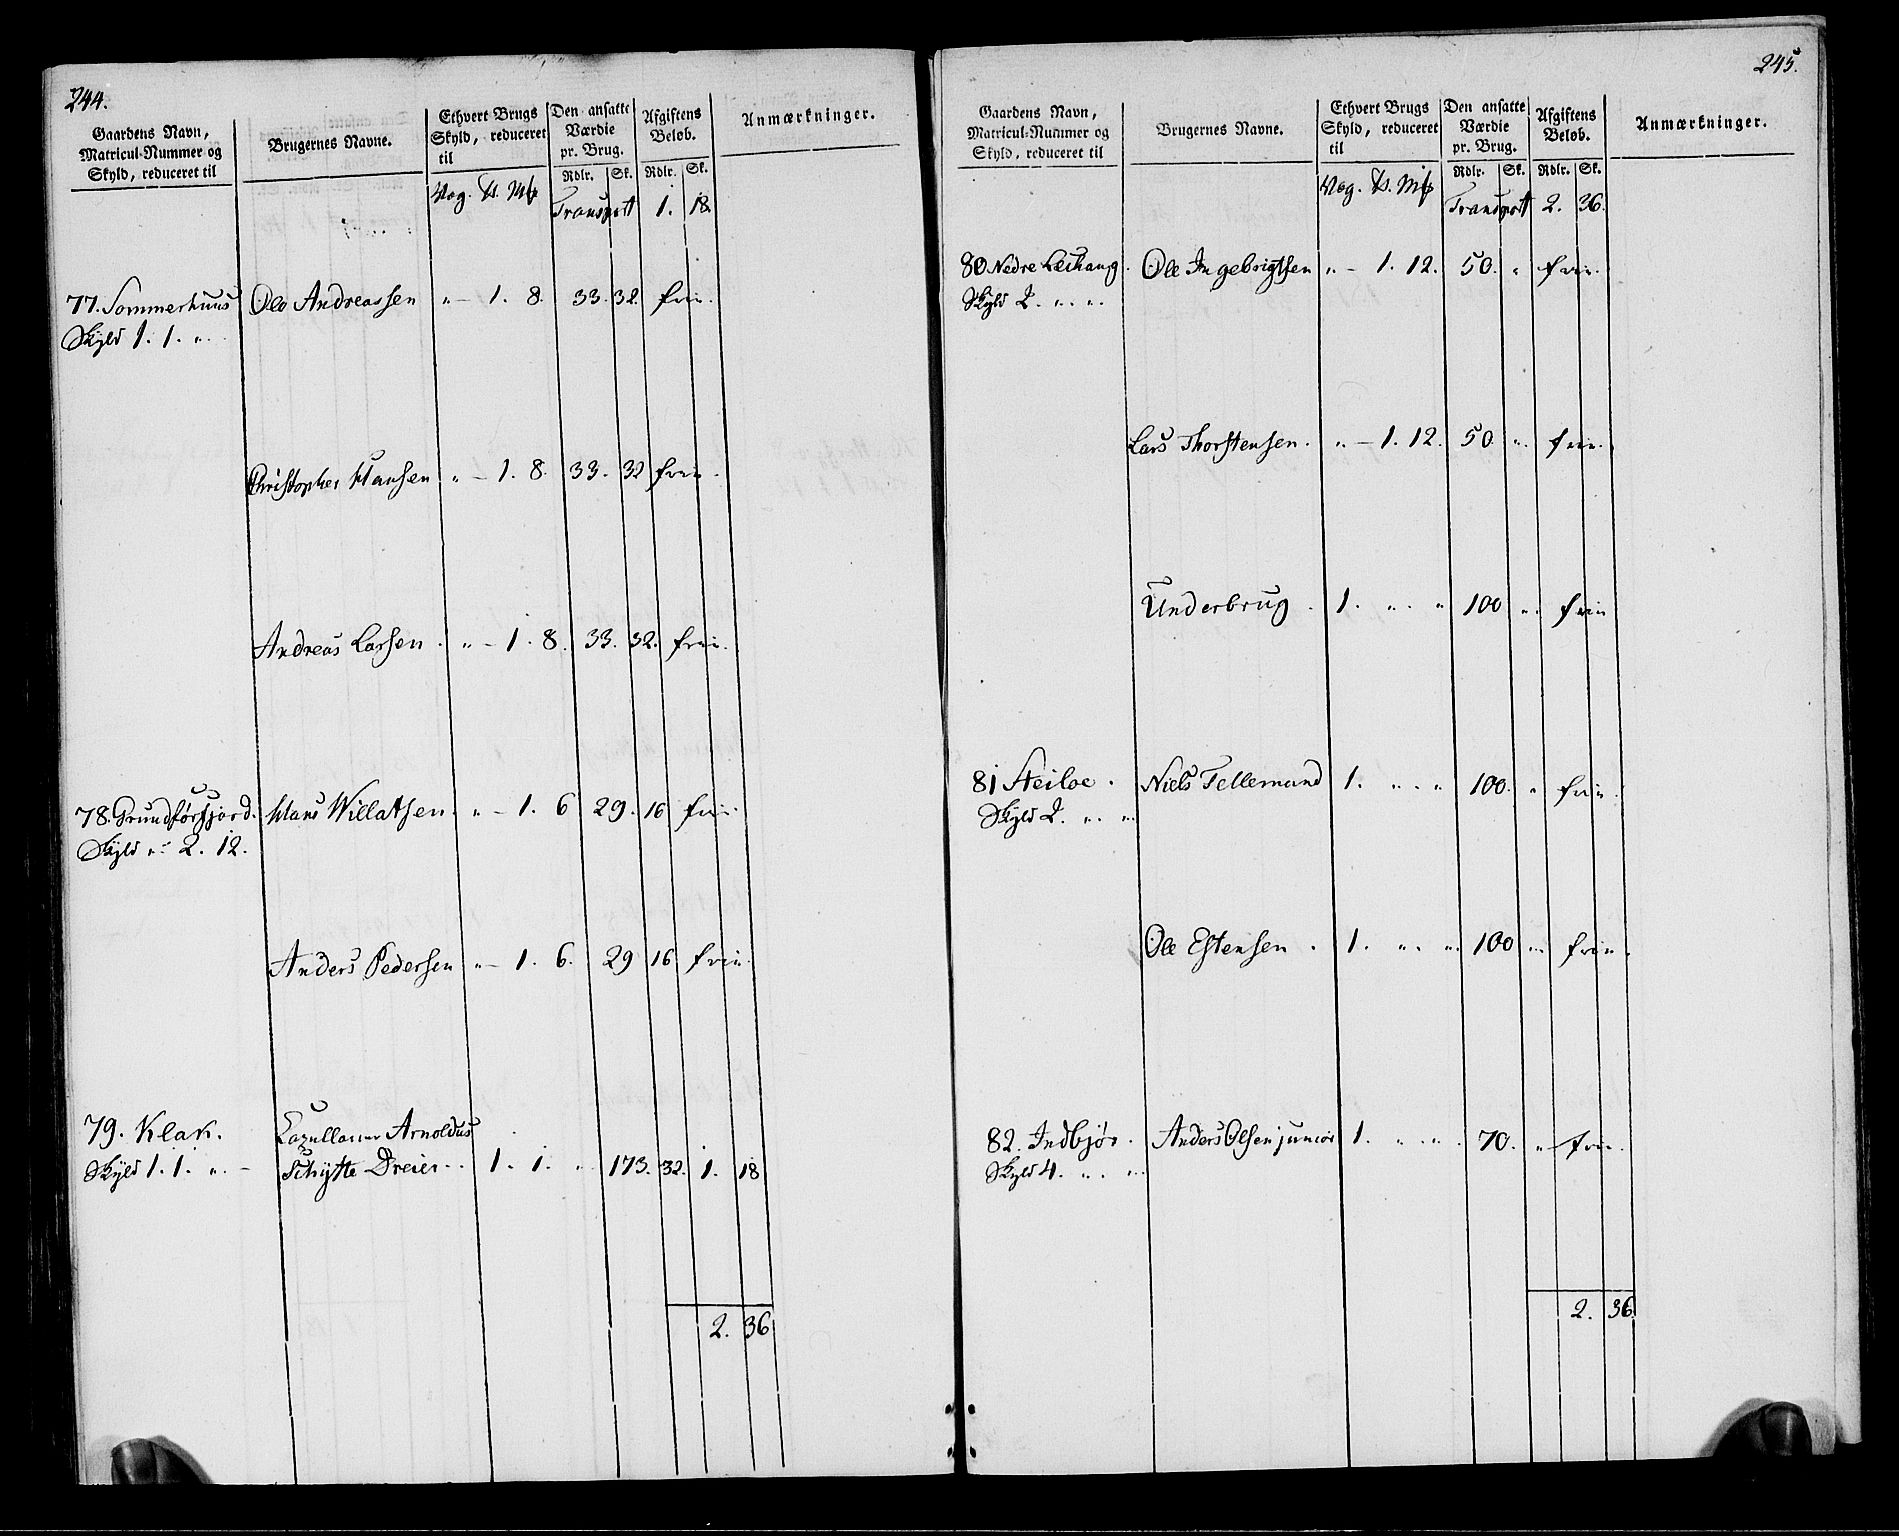 244.
Gaardens Navn, Matricul-Nummer og Skyld, reduceret til | Brugernes Navne. | Ethvert Brugs Skyld, reduceret til | Den ansatte Værdie pr. Brug. | Afgiftens Beløb. | Anmærkninger.
Rdlr. Sk. Rdlr. Sk.
Vog. Transport 1. 18.
77. Sommerhuus Ole Andreassen „ – 1. 8. 33. 32. frie.
Skyld 1. 1. „.
Christopher Hansen „ – 1. 8. 33. 32 frie.
Andreas Larsen. „ – 1. 8. 33. 32. frie.
78. Grundførfjord. Hans Willatsen. „ – 1. 6 29. 16 frie.
Skyld „ – 2. 12.
Anders Pedersen „ – 1. 6. 29 16 frie.
79. Klak. Arnoldus
Skyld 1. 1. „. – Schytte Dreier. . 1. 1. „. 173. 32. 1. 18
2. 36
245.
Gaardens Navn, Matricul-Nummer og Skyld, reduceret til | Brugernes Navne. | Ethvert Brugs Skyld, reduceret til | Den ansatte Værdie pr. Brug. | Afgiftens Beløb. | Anmærkninger.
Rdlr. Sk. Rdlr. Sk.
Vog. Transport 2. 36.
80 Nedre Leihaug. Ole Ingebrigtsen „ – 1. 12. 50. „ frie.
Skyld 2. „. „.
Lars Thorstensen. „ – 1. 12. 50. „. frie.
Underbrug. 1. „. „ 100 „. frie
81 Heiloe. Niels Tellemand 1. „. „. 100. „ frie.
Skyld 2. „. „.
Ole Estensen. 1. „. „. 100 „. frie.
82. Indbjør. Anders Olsen junior 1. „. „. 70. „ frie.
Skyld 4. „. „.
2. 36.